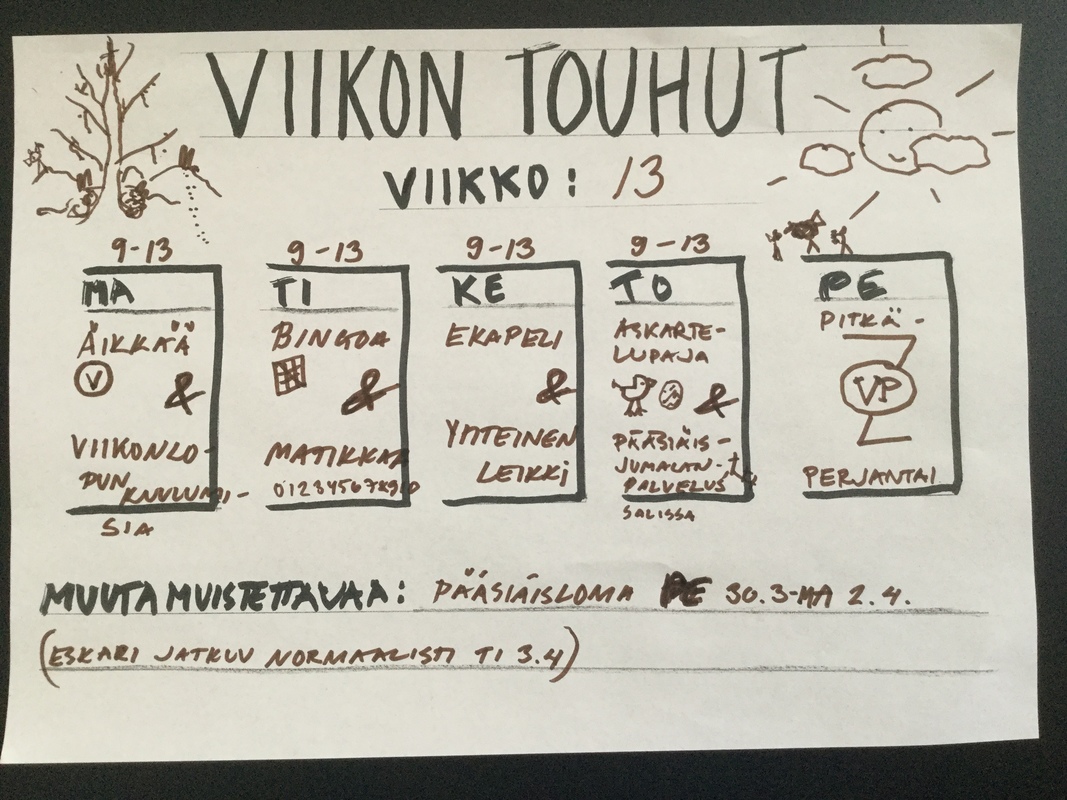 VIIKON TOUHUT
VIIKKO: 13
9-13
MA
ÄIKKÄÄ
V
&
VIIKONLO-
PUN KUULUMI-
SIA
9-13
TI
BINGOA
&
MATIKKAA
012345678910
9-13
KE
EKAPELI
&
YHTEINEN
LEIKKI
9-13
TO
ASKARTE-
LUPAJA
&
PÄÄSIÄIS-
JUMALAN-
PALVELUS
SALISSA
PE
PITKÄ-
VP
PERJANTAI
MUUTA MUISTETTAVAA: PÄÄSIÄISLOMA PE 30.3-MA 2.4.
(ESKARI JATKUU NORMAALISTI TI 3.4)